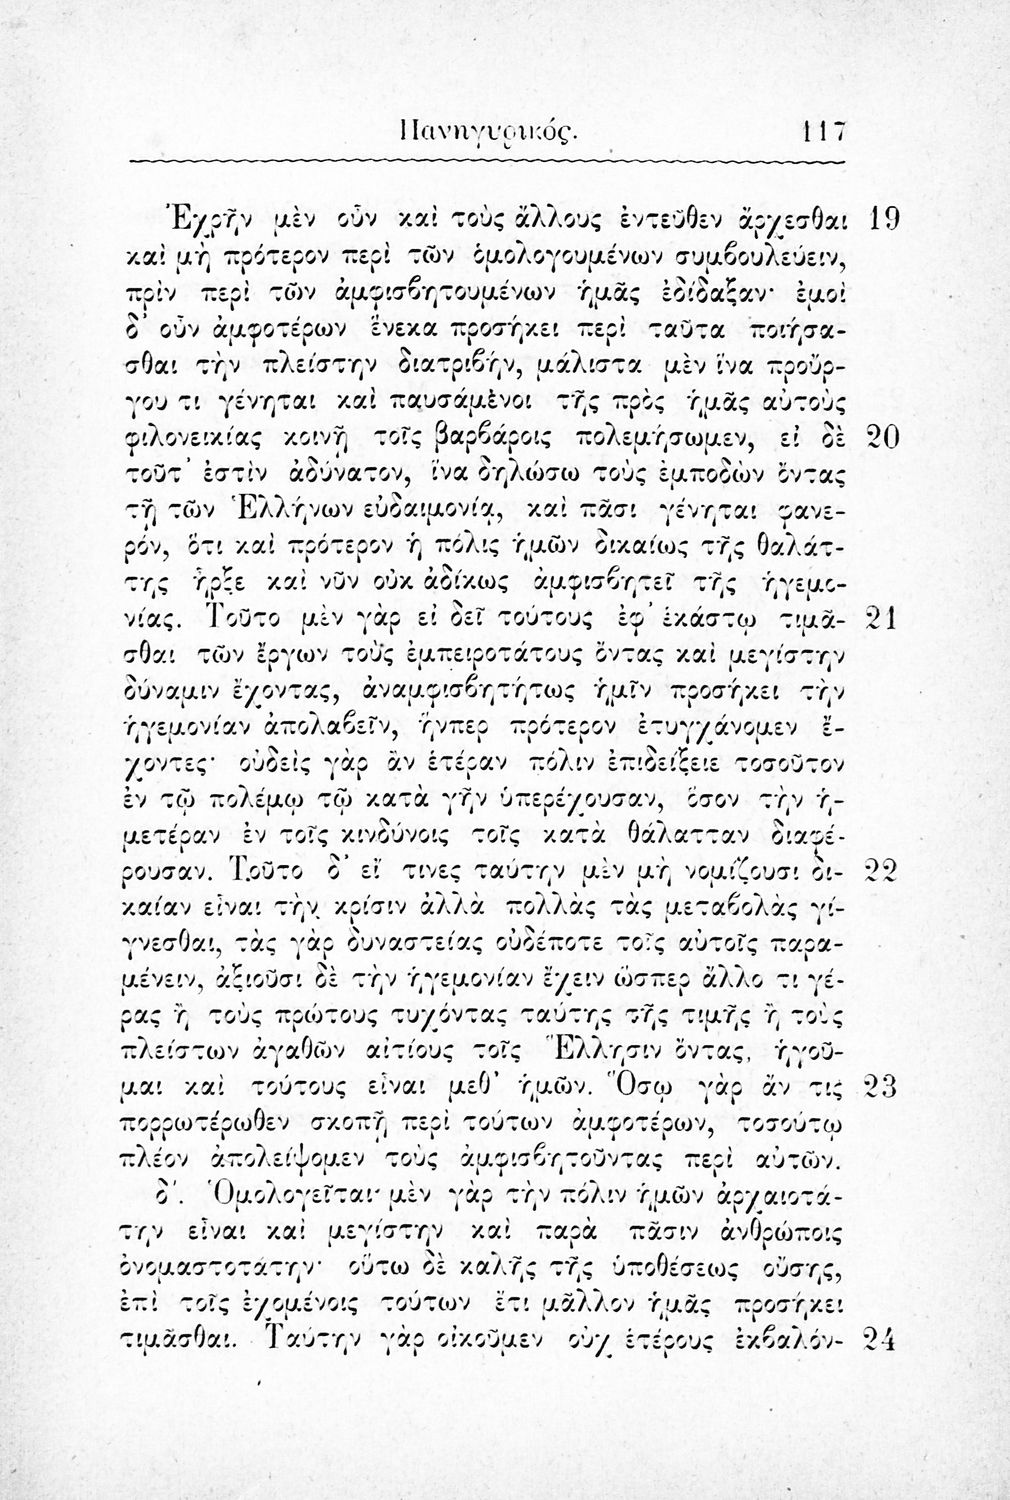 Πανηγυρικός. 117
Ἐχρῆν μὲν οὖν καὶ τοὺς ἄλλους ἐντεῦθεν ἄρχεσθαι 19
καὶ μὴ πρότερον περὶ τῶν ὁμολογουμένων συμβουλεύειν,
πρὶν περὶ τῶν ἀμφισβητουμένων ἡμᾶς ἐδίδαξαν· ἐμοὶ
δ' οὖν ἀμφοτέρων ἕνεκα προσήκει περὶ ταῦτα ποιήσα-
σθαι τὴν πλείστην διατριβήν, μάλιστα μὲν ἵνα προὔρ-
γου τι γένηται καὶ παυσάμενοι τῆς πρὸς ἡμᾶς αὐτοὺς
φιλονεικίας κοινῇ τοῖς βαρβάροις πολεμήσωμεν, εἰ δὲ 20
τοῦτ' ἐστὶν ἀδύνατον, ἵνα δηλώσω τοὺς ἐμποδὼν ὄντας
τῇ τῶν Ἑλλήνων εὐδαιμονίᾳ, καὶ πᾶσι γένηται φανε-
ρόν, ὅτι καὶ πρότερον ἡ πόλις ἡμῶν δικαίως τῆς θαλάτ-
της ἦρξε καὶ νῦν οὐκ ἀδίκως ἀμφισβητεῖ τῆς ἡγεμο-
νίας. Τοῦτο μὲν γὰρ εἰ δεῖ τούτους ἐφ' ἑκάστῳ τιμᾶ- 21
σθαι τῶν ἔργων τοὺς ἐμπειροτάτους ὄντας καὶ μεγίστην
δύναμιν ἔχοντας, ἀναμφισβητήτως ἡμῖν προσήκει τὴν
ἡγεμονίαν ἀπολαβεῖν, ἥνπερ πρότερον ἐτυγχάνομεν ἔ-
χοντες· οὐδεὶς γὰρ ἂν ἑτέραν πόλιν ἐπιδείξειε τοσοῦτον
ἐν τῷ πολέμῳ τῷ κατὰ γῆν ὑπερέχουσαν, ὅσον τὴν ἡ-
μετέραν ἐν τοῖς κινδύνοις τοῖς κατὰ θάλατταν διαφέ-
ρουσαν. Τοῦτο δ' εἴ τινες ταύτην μὲν μὴ νομίζουσι δι- 22
καίαν εἶναι τὴν κρίσιν ἀλλὰ πολλὰς τὰς μεταβολὰς γί-
γνεσθαι, τὰς γὰρ δυναστείας οὐδέποτε τοῖς αὐτοῖς παρα-
μένειν, ἀξιοῦσι δὲ τὴν ἡγεμονίαν ἔχειν ὥσπερ ἄλλο τι γέ-
ρας ἢ τοὺς πρώτους τυχόντας ταύτης τῆς τιμῆς ἢ τοὺς
πλείστων ἀγαθῶν αἰτίους τοῖς Ἕλλησιν ὄντας, ἡγοῦ-
μαι καὶ τούτους εἶναι μεθ' ἡμῶν. Ὅσῳ γὰρ ἄν τις 23
πορρωτέρωθεν σκοπῇ περὶ τούτων ἀμφοτέρων, τοσούτῳ
πλέον ἀπολείψομεν τοὺς ἀμφισβητοῦντας περὶ αὐτῶν.
δ'. Ὁμολογεῖται μὲν γὰρ τὴν πόλιν ἡμῶν ἀρχαιοτά-
την εἶναι καὶ μεγίστην καὶ παρὰ πᾶσιν ἀνθρώποις
ὀνομαστοτάτην· οὕτω δὲ καλῆς τῆς ὑποθέσεως οὔσης,
ἐπὶ τοῖς ἐχομένοις τούτων ἔτι μᾶλλον ἡμᾶς προσήκει
τιμᾶσθαι. Ταύτην γὰρ οἰκοῦμεν οὐχ ἑτέρους ἐκβαλόν- 24